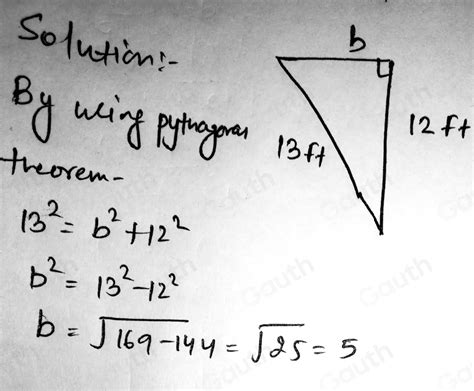 Solution:-
By using pythagoras
theorem-
13² = b² + 12²
b² = 13² - 12²
b = √169-144 = √25 = 5
b
13 ft
12 ft
Gauth
Gauth
Gauth
Gauth